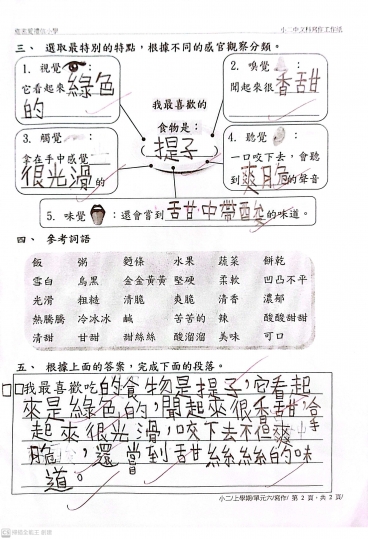 小二中文科寫作工作紙
三、 選取最特別的特點，根據不同的感官觀察分類。
1. 視覺：
它看起來綠色
的
2. 嗅覺：
聞起來很香甜
我最喜歡的
食物是：
(提子)
3. 觸覺：
拿在手中感覺
很光滑的
4. 聽覺：
一口咬下去，會聽
到爽脆的聲音
5. 味覺：還會嘗到舌甘中帶酸的味道。
四、 參考詞語
飯 粥 麵條 水果 蔬菜 餅乾
雪白 烏黑 金金黃黃 堅硬 柔軟 凹凸不平
光滑 粗糙 清脆 爽脆 清香 濃郁
熱騰騰 冷冰冰 鹹 苦苦的 辣 酸酸甜甜
清甜 甘甜 甜絲絲 酸溜溜 美味 可口
五、 根據上面的答案，完成下面的段落。
我最喜歡吃的食物是提子，它看起
來是綠色的，聞起來很香甜，拿
起來很光滑，咬下去不但爽
脆，還嘗到甜絲絲的味
道。
小二/上學期/單元六/寫作/ 第 2 頁，共 2 頁/